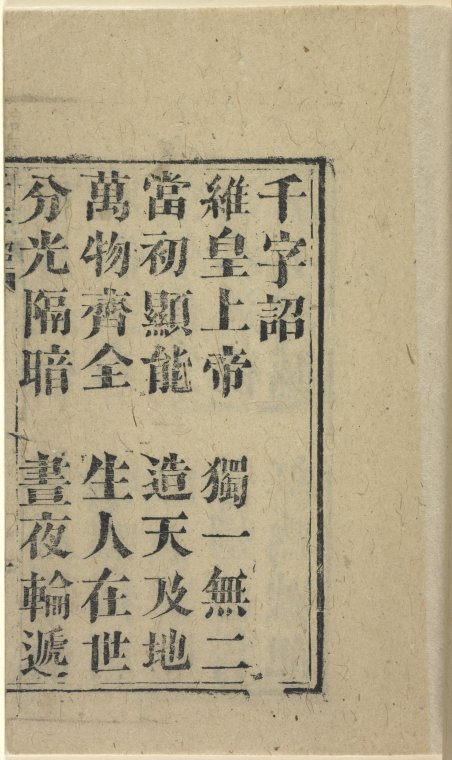 千字詔
維皇上帝　獨一無二
當初顯能　造天及地
萬物齊全　生人在世
分光隔暗　晝夜輪遞